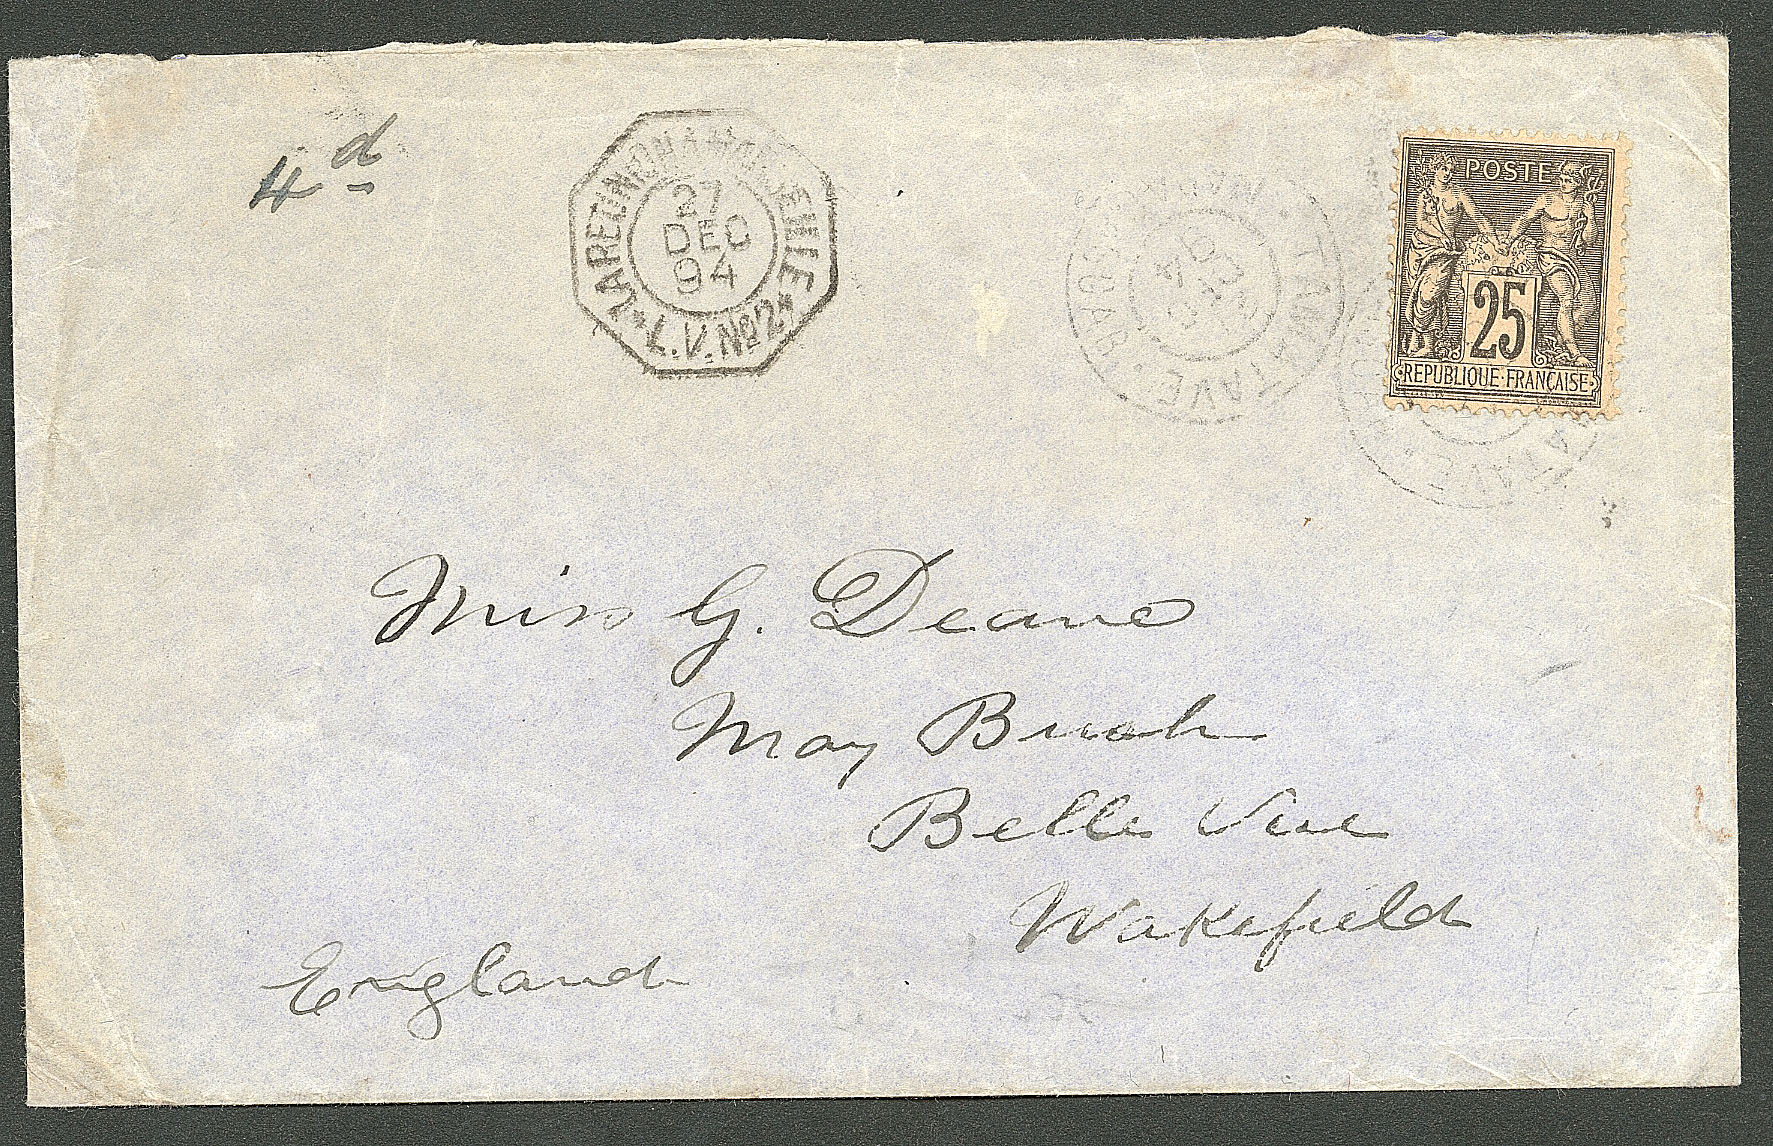 4d
LA REUNION A MARSEILLE
27
DEC
94
L.V. No 2
TAMATAVE
POSTE
25
REPUBLIQUE FRANÇAISE
Miss G. Deane
May Bush
Belle Vue
Wakefield
England